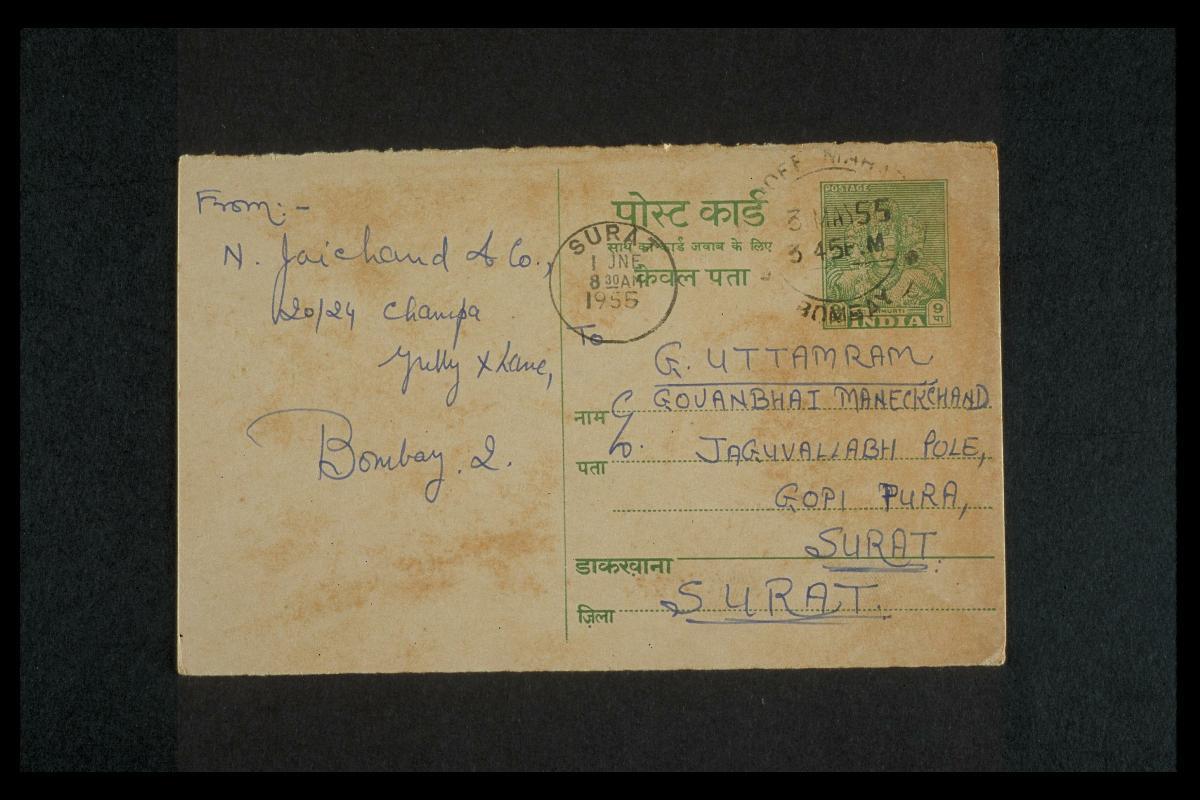 From:-
N. Jaichand & Co.,
120/24 Champa
Gully X Lane,
Bombay. 2.
पोस्ट कार्ड
साथ का कार्ड जवाब के लिए
केवल पता
POSTAGE
9
पा
INDIA
MAY 55
3 45P.M
BOMBAY
SURAT
1 JNE
8 30AM
1955
To
G. UTTAMRAM
नाम C/o. GOVANBHAI MANECKCHAND
पता JAGUVALLABH POLE,
GOPI PURA,
SURAT.
डाकखाना
ज़िला SURAT.